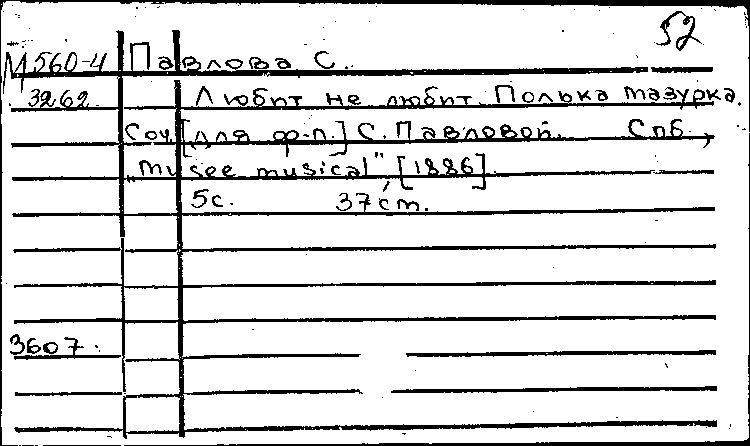 52
М 560-4 Павлова С.
3262 Любит не любит. Полька мазурка.
Соч. [для ф-п.] С. Павловой. Спб.,
„Musee musical", [1886].
5с. 37 см.
3607.